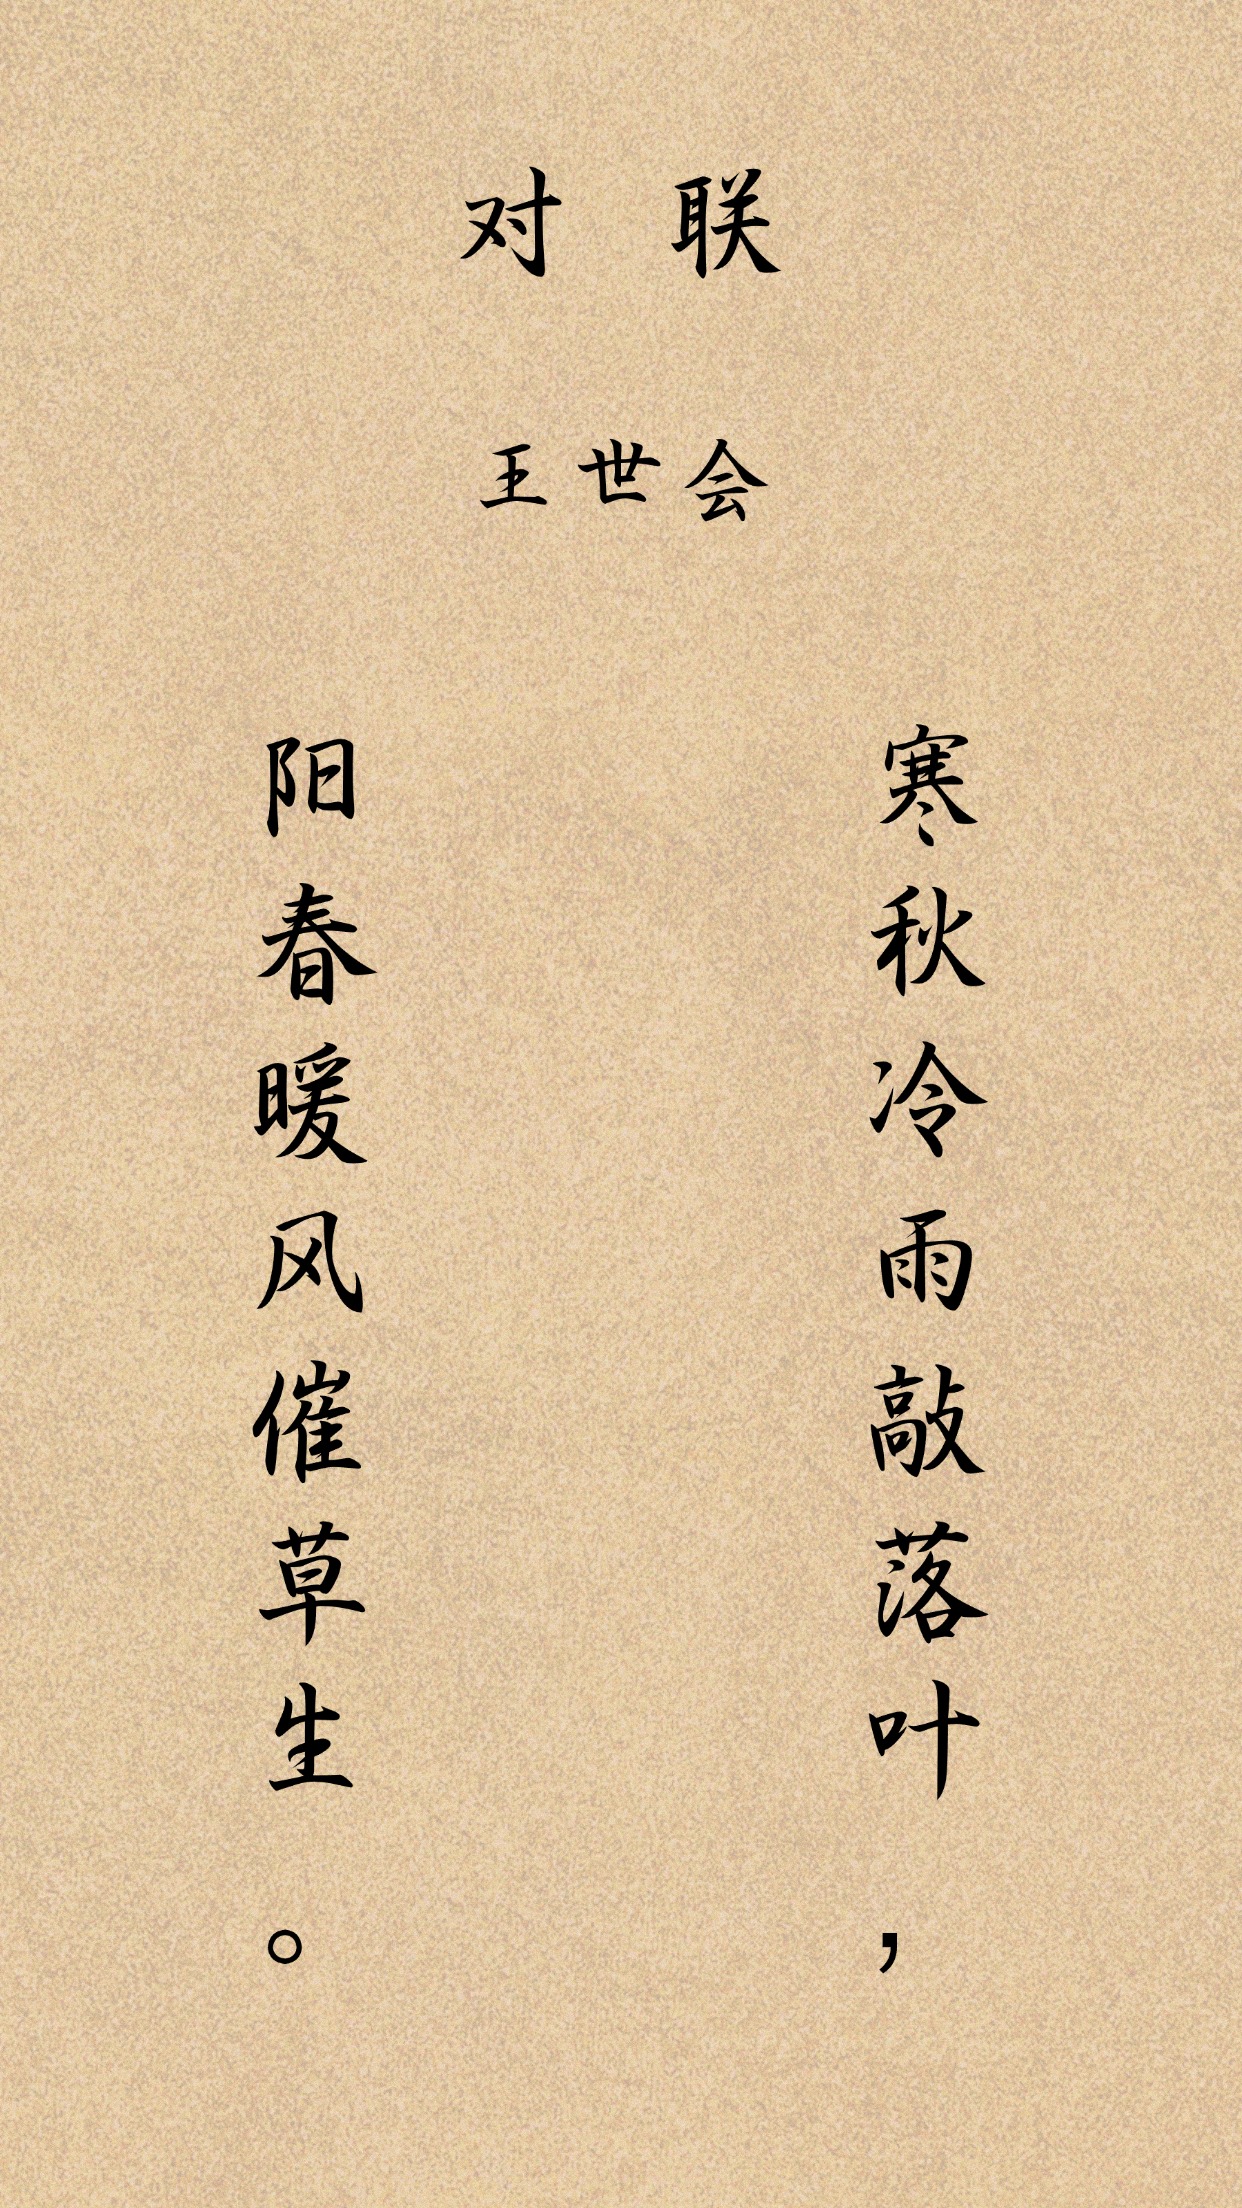 对 联
王世会
寒秋冷雨敲落叶，
阳春暖风催草生。